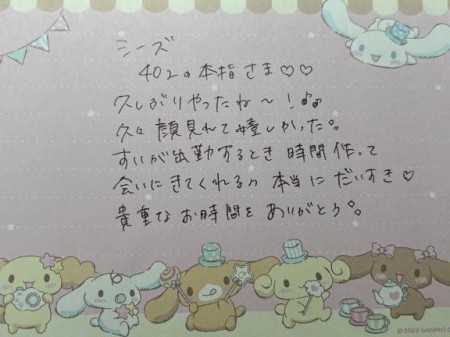 シーズ
402の本指さま♡♡
久しぶりやったね〜！♪
久々 顔見れて嬉しかった。
すいが出勤するとき 時間作って
会いにきてくれるの 本当に だいすき♡
貴重な お時間を ありがとう。
© 2023 SANRIO